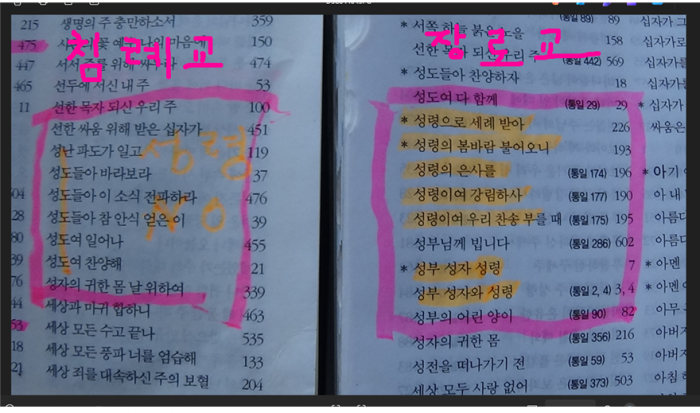 침례교
215 생명의 주 충만하소서 359
475 150
447 474
465 선두에 서신 내 주 53
11 선한 목자 되신 우리 주 100
선한 싸움 위해 받은 십자가 451
성난 파도가 일고 119
성도들아 바라보라 37
성도들아 이 소식 전파하라 476
28 성도들아 참 안식 얻은 이 39
성도여 일어나 455
성도여 찬양해 21
성자의 귀한 몸 날 위하여 339
세상과 마귀 합하니 463
53 세상 모든 수고 끝나 535
18 세상 모든 풍파 너를 엄습해 133
21 세상 죄를 대속하신 주의 보혈 204
성령
NO
장로교
* 서쪽 하늘 붉은 노을 (통일 89) 89 십자가
선한 목자 되신 우리 주 (통일 442) 569 십자가로
* 성도들아 찬양하자 18 십자가를
성도여 다 함께 (통일 29) 29 * 십자가
* 성령으로 세례 받아 226 싸움은
* 성령의 봄바람 불어오니 193
성령의 은사를 (통일 174) 196 * 아기
성령이여 강림하사 (통일 177) 190 아 내
성령이여 우리 찬송 부를 때 (통일 175) 195 아름다
성부님께 빕니다 (통일 286) 602 아름다
* 성부 성자 성령 7 * 아멘
성부 성자와 성령 (통일 2, 4) 3, 4 * 아멘
성부의 어린 양이 (통일 90) 82 아무
성자의 귀한 몸 (통일 356) 216 아버지
성전을 떠나가기 전 (통일 59) 53 아버지
세상 모두 사랑 없어 (통일 373) 503 아침